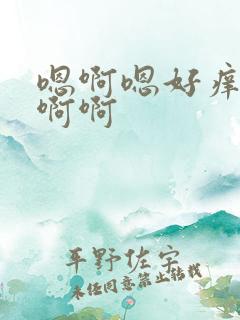 嗯啊嗯好痒
啊啊
平野佐宇
未经同意禁止转载